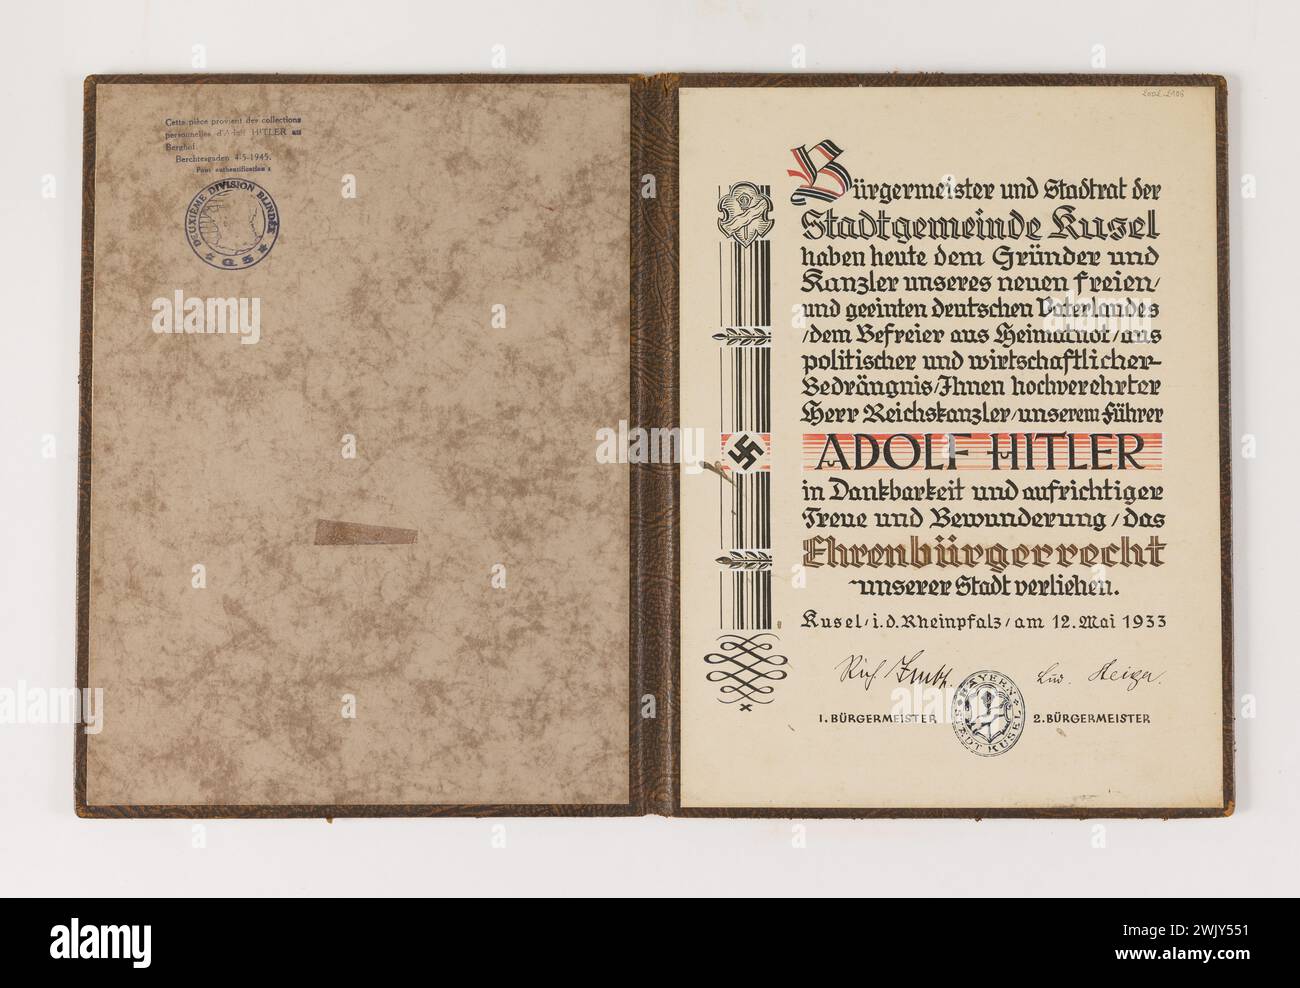 Cette pièce provient des collections
personnelles d'Adolf HITLER au
Berghof.
Berchtesgaden 4-5-1945.
Pour authentification :
DEUXIÈME DIVISION BLINDÉE
★ G. 5 ★
2002.2106
Bürgermeister und Stadtrat der
Stadtgemeinde Kusel
haben heute dem Gründer und
Kanzler unseres neuen freien/
und geeinten deutschen Vaterlandes
/dem Befreier aus Heimatnot/aus
politischer und wirtschaftlicher-
Bedrängnis/Ihnen hochverehrter
Herr Reichskanzler/unserem Führer
ADOLF HITLER
in Dankbarkeit und aufrichtiger
Treue und Bewunderung/das
Ehrenbürgerrecht
unserer Stadt verliehen.
Kusel/i.d.Rheinpfalz/am 12.Mai 1933
1. BÜRGERMEISTER
BAYERN
STADT KUSEL
2. BÜRGERMEISTER
alamy
alamy
Image ID: 2WJY551
www.alamy.com